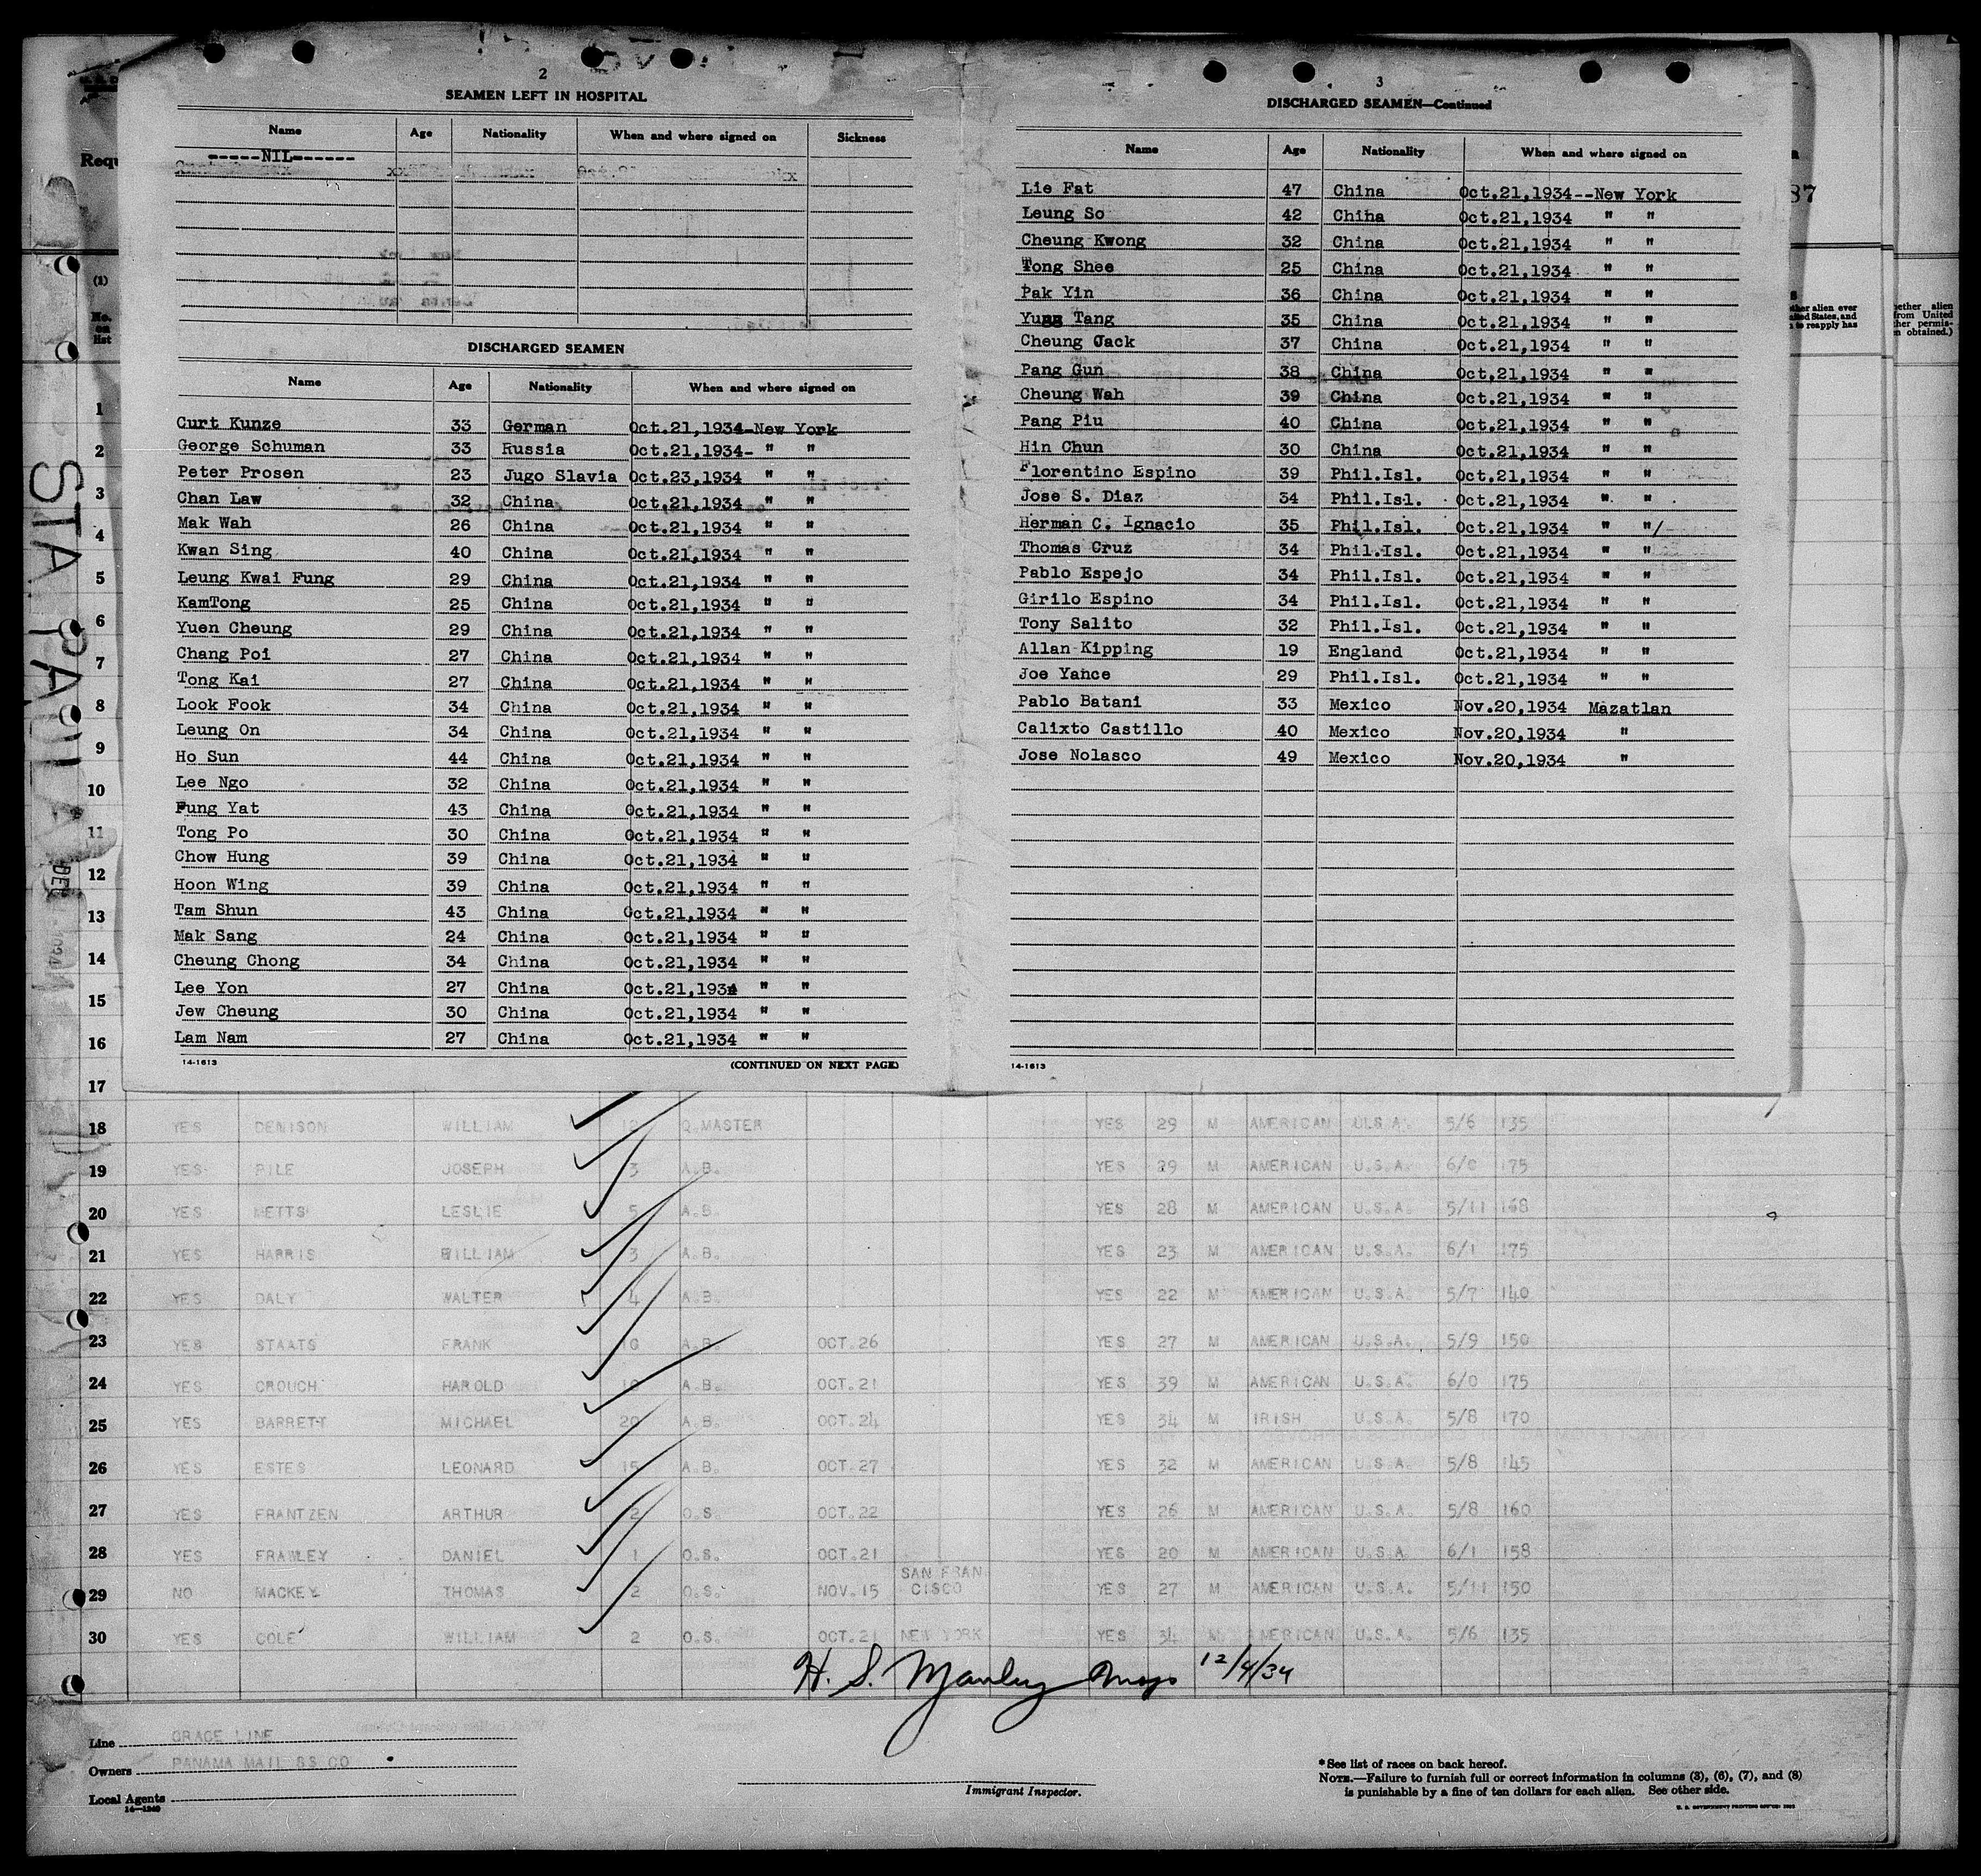 2
SEAMEN LEFT IN HOSPITAL
Name Age Nationality When and where signed on Sickness
-----NIL------
DISCHARGED SEAMEN
Name Age Nationality When and where signed on
Curt Kunze 33 German Oct.21,1934-New York
George Schuman 33 Russia Oct.21,1934- " "
Peter Prosen 23 Jugo Slavia Oct.23,1934 " "
Chan Law 32 China Oct.21,1934 " "
Mak Wah 26 China Oct.21,1934 " "
Kwan Sing 40 China Oct.21,1934 " "
Leung Kwai Fung 29 China Oct.21,1934 " "
KamTong 25 China Oct.21,1934 " "
Yuen Cheung 29 China Oct.21,1934 " "
Chang Poi 27 China Oct.21,1934 " "
Tong Kai 27 China Oct.21,1934 " "
Look Fook 34 China Oct.21,1934 " "
Leung On 34 China Oct.21,1934 " "
Ho Sun 44 China Oct.21,1934 " "
Lee Ngo 32 China Oct.21,1934 " "
Fung Yat 43 China Oct.21,1934 " "
Tong Po 30 China Oct.21,1934 " "
Chow Hung 39 China Oct.21,1934 " "
Hoon Wing 39 China Oct.21,1934 " "
Tam Shun 43 China Oct.21,1934 " "
Mak Sang 24 China Oct.21,1934 " "
Cheung Chong 34 China Oct.21,1934 " "
Lee Yon 27 China Oct.21,1934 " "
Jew Cheung 30 China Oct.21,1934 " "
Lam Nam 27 China Oct.21,1934 " "
14-1613 (CONTINUED ON NEXT PAGE)
3
DISCHARGED SEAMEN—Continued
Name Age Nationality When and where signed on
Lie Fat 47 China Oct.21,1934--New York
Leung So 42 China Oct.21,1934 " "
Cheung Kwong 32 China Oct.21,1934 " "
Tong Shee 25 China Oct.21,1934 " "
Pak Yin 36 China Oct.21,1934 " "
Tang 35 China Oct.21,1934 " "
Cheung Jack 37 China Oct.21,1934 " "
Pang Gun 38 China Oct.21,1934 " "
Cheung Wah 39 China Oct.21,1934 " "
Pang Piu 40 China Oct.21,1934 " "
Hin Chun 30 China Oct.21,1934 " "
Florentino Espino 39 Phil.Isl. Oct.21,1934 " "
Jose S. Diaz 34 Phil.Isl. Oct.21,1934 " "
Herman C. Ignacio 35 Phil.Isl. Oct.21,1934 " "/
Thomas Cruz 34 Phil.Isl. Oct.21,1934 " "
Pablo Espejo 34 Phil.Isl. Oct.21,1934 " "
Girilo Espino 34 Phil.Isl. Oct.21,1934 " "
Tony Salito 32 Phil.Isl. Oct.21,1934 " "
Allan Kipping 19 England Oct.21,1934 " "
Joe Yance 29 Phil.Isl. Oct.21,1934 " "
Pablo Batani 33 Mexico Nov.20,1934 Mazatlan
Calixto Castillo 40 Mexico Nov.20,1934 "
Jose Nolasco 49 Mexico Nov.20,1934 "
14-1613
87
(1)
No. on list
1
2
3
4
5
6
7
8
9
10
11
12
13
14
15
16
17
18 YES DENISON WILLIAM Q.MASTER YES 29 M AMERICAN U.S.A. 5/6 135
19 YES PILE JOSEPH 3 A.B. YES 29 M AMERICAN U.S.A. 6/0 175
20 YES METTS LESLIE 5 A.B. YES 28 M AMERICAN U.S.A. 5/11 168
21 YES HARRIS WILLIAM 3 A.B. YES 23 M AMERICAN U.S.A. 6/1 175
22 YES DALY WALTER 4 A.B. YES 22 M AMERICAN U.S.A. 5/7 140
23 YES STAATS FRANK A.B. OCT.26 YES 27 M AMERICAN U.S.A. 5/9 150
24 YES CROUCH HAROLD A.B. OCT.21 YES 39 M AMERICAN U.S.A. 6/0 175
25 YES BARRETT MICHAEL 20 A.B. OCT.24 YES 34 M IRISH U.S.A. 5/8 170
26 YES ESTES LEONARD 15 A.B. OCT.27 YES 32 M AMERICAN U.S.A. 5/8 145
27 YES FRANTZEN ARTHUR 2 O.S. OCT.22 YES 26 M AMERICAN U.S.A. 5/8 160
28 YES FRAWLEY DANIEL 1 O.S. OCT.21 YES 20 M AMERICAN U.S.A. 6/1 158
29 NO MACKEY THOMAS 2 O.S. NOV.15 SAN FRAN CISCO YES 27 M AMERICAN U.S.A. 5/11 150
30 YES COLE WILLIAM 2 O.S. OCT.21 NEW YORK YES 34 M AMERICAN U.S.A. 5/6 135
H. S. Manley 12/4/34
Line GRACE LINE
Owners PANAMA MAIL SS CO
Local Agents
14—1240
Immigrant Inspector.
*See list of races on back hereof.
NOTE.—Failure to furnish full or correct information in columns (3), (6), (7), and (8)
is punishable by a fine of ten dollars for each alien. See other side.